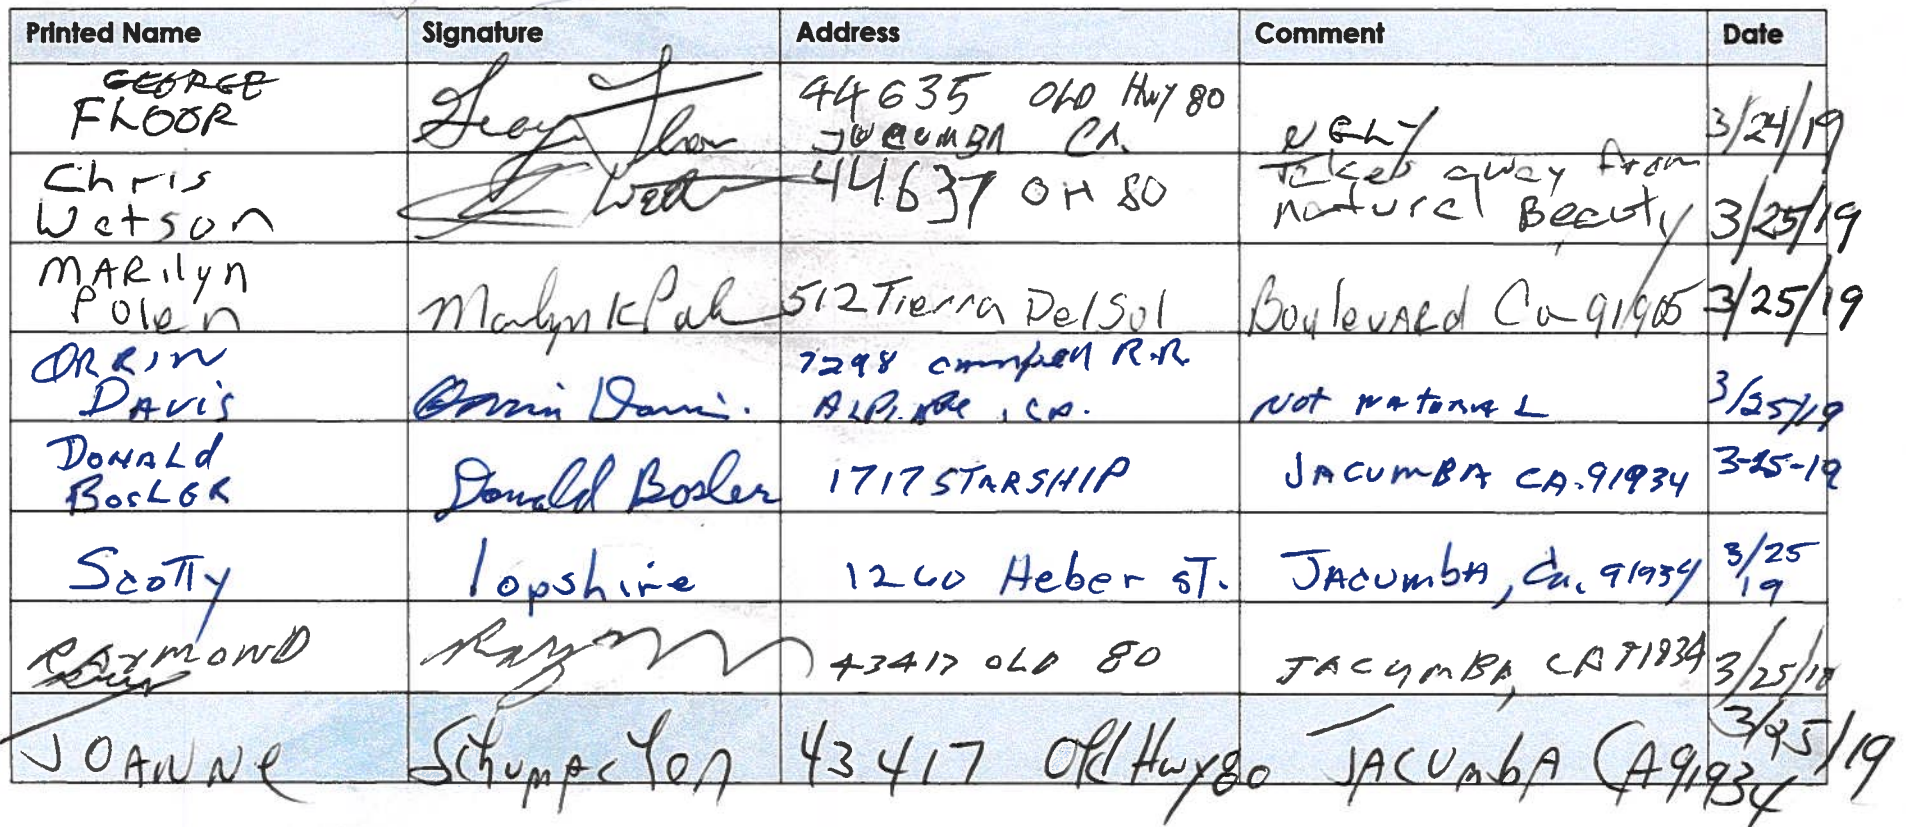 Printed Name Signature Address Comment Date
GEORGE
FLOOR
44635 OLD Hwy 80
JUCUMBA CA.
UGLY
3/24/19
Chris
Watson
44637 OH 80
Takes away from
natural Beauty
3/25/19
MARilyn
Polen
512 Tierra Del Sol
Boulevard Ca 91905
3/25/19
ORRIN
DAVIS
Orrin Davis.
7298 R.R.
ALPINE, CA.
Not NATURAL
3/25/19
DONALD
BOSLER
Donald Bosler
1717 STARSHIP
JACUMBA CA. 91934
3-25-19
Scotty
Topshire
1260 Heber ST.
JAcumbA, Ca. 91934
3/25
19
RAYMOND
43417 OLD 80
JACUMBA, CA 91934
3/25/19
JOANNe
43417 Old Hwy 80
JACUmbA CA 91934
3/25/19